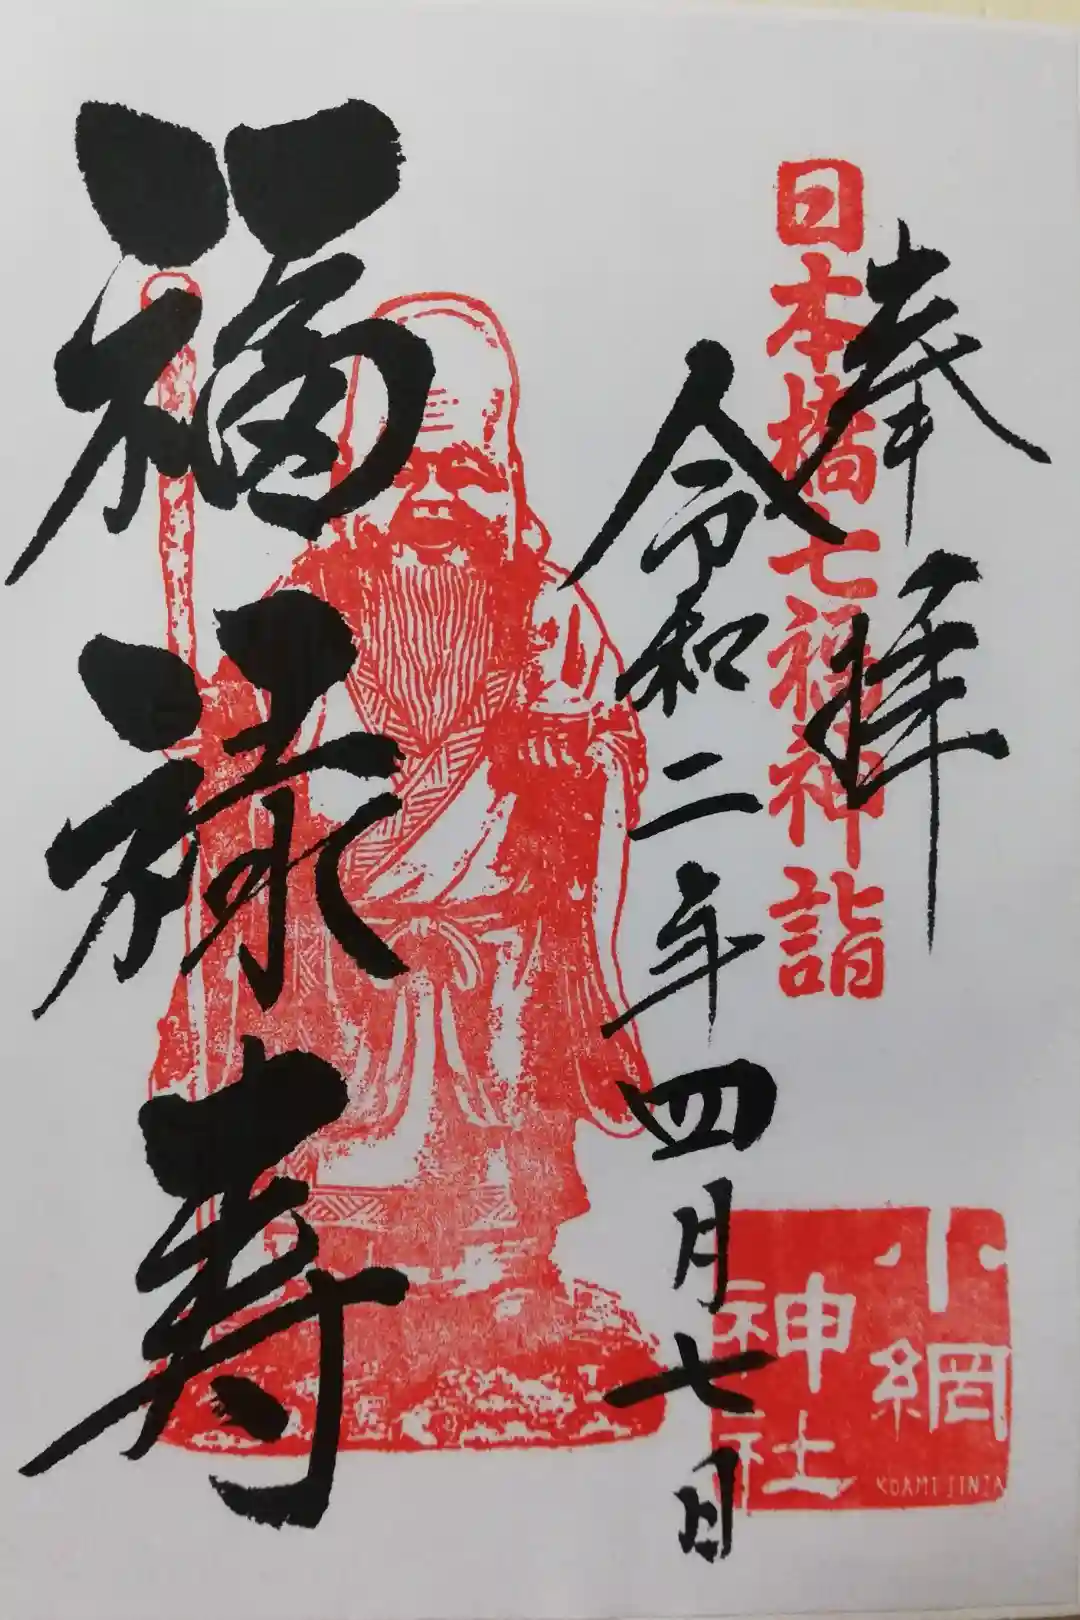 奉拝
日本橋七福神詣
令和二年四月七日
福禄寿
小網
神社
KOAMI JINJA